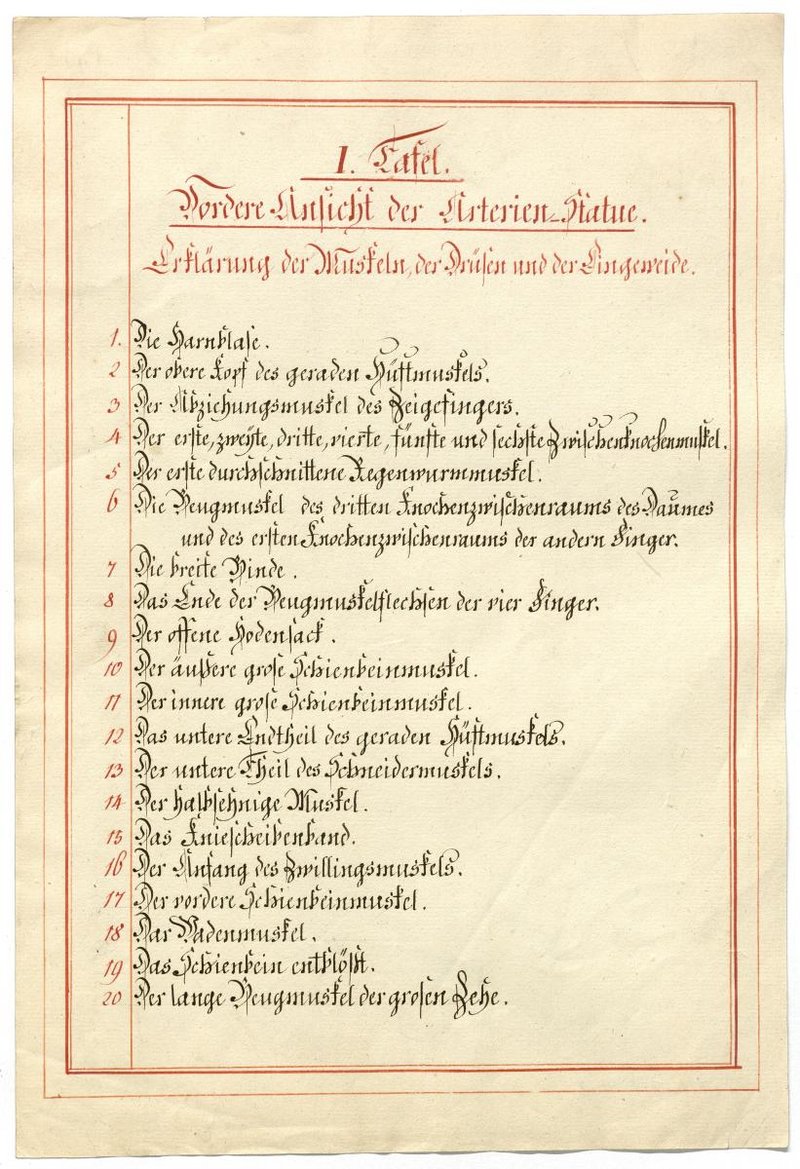 I. Tafel.
Vordere Ansicht der Arterien-Statue.
Erklärung der Muskeln, der Drüsen und der Eingeweide.
1. Die Harnblase.
2 Der obere Kopf des geraden Hüftmuskels.
3 Der Abziehungsmuskel des Zeigefingers.
4 Der erste, zweyte, dritte, vierte, fünfte und sechste Zwischenknochenmuskel.
5 Der erste durchschnittene Regenwurmmuskel.
6 Die Beugmuskel des dritten Knochenzwischenraums des Daumes
und des ersten Knochenzwischenraums der andern Finger.
7 Die breite Binde.
8 Das Ende der Beugmuskelflechsen der vier Finger.
9 Der offene Hodensack.
10 Der äußere grose Schienbeinmuskel.
11 Der innere grose Schienbeinmuskel.
12 Das untere Endtheil des geraden Hüftmuskels.
13 Der untere Theil des Schneidermuskels.
14 Der halbsehnige Muskel.
15 Das Kniescheibenband.
16 Der Anfang des Zwillingsmuskels.
17 Der vordere Schienbeinmuskel.
18 Dar Wadenmuskel.
19 Das Schienbein entblößt.
20 Der lange Beugmuskel der grosen Zehe.